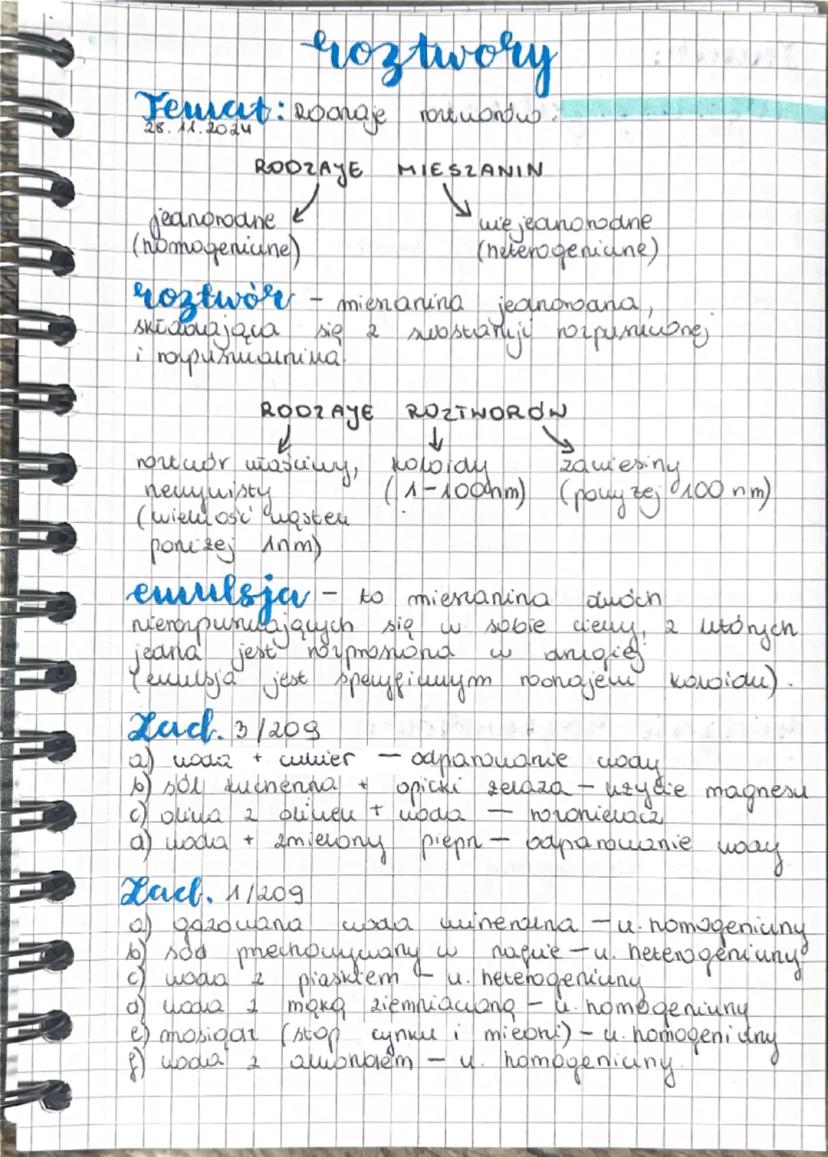 roztwory
Temat: Rodzaje roztworów.
28.11.2024
RODZAJE MIESZANIN
jednorodne
(homogeniczne)
niejednorodne
(heterogeniczne)
roztwór – mieszanina jednorodna,
składająca się z substancji rozpuszczonej
i rozpuszczalnika
RODZAJE ROZTWORÓW
roztwór właściwy,
rzeczywisty
(wielkość cząstek
poniżej 1nm)
koloidy
(1-100nm)
zawiesiny
(powyżej 100 nm)
emulsja – to mieszanina dwóch
nierozpuszczających się w sobie cieczy, z których
jedna jest rozproszona w drugiej
(emulsja jest specyficznym rodzajem koloidu).
Zad. 3/209
a) woda + cukier – odparowanie wody
b) sól kuchenna + opiłki żelaza – użycie magnesu
c) oliwa z oliwek + woda – rozdzielacz
d) woda + zmielony pieprz – odparowanie wody
Zad. 1/209
a) gazowana woda mineralna – u. homogeniczny
b) sód przechowywany w nafcie – u. heterogeniczny
c) woda z piaskiem – u. heterogeniczny
d) woda z mąką ziemniaczaną – u. homogeniczny
e) mosiądz (stop cynku i miedzi) – u. homogeniczny
f) woda z alkoholem – u. homogeniczny.